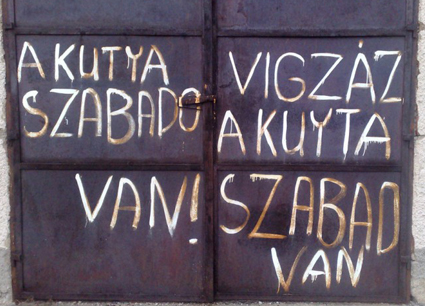 A KUTYA
SZABADO
VAN!
VIGZÁZ
A KUYTA
SZABAD
VAN